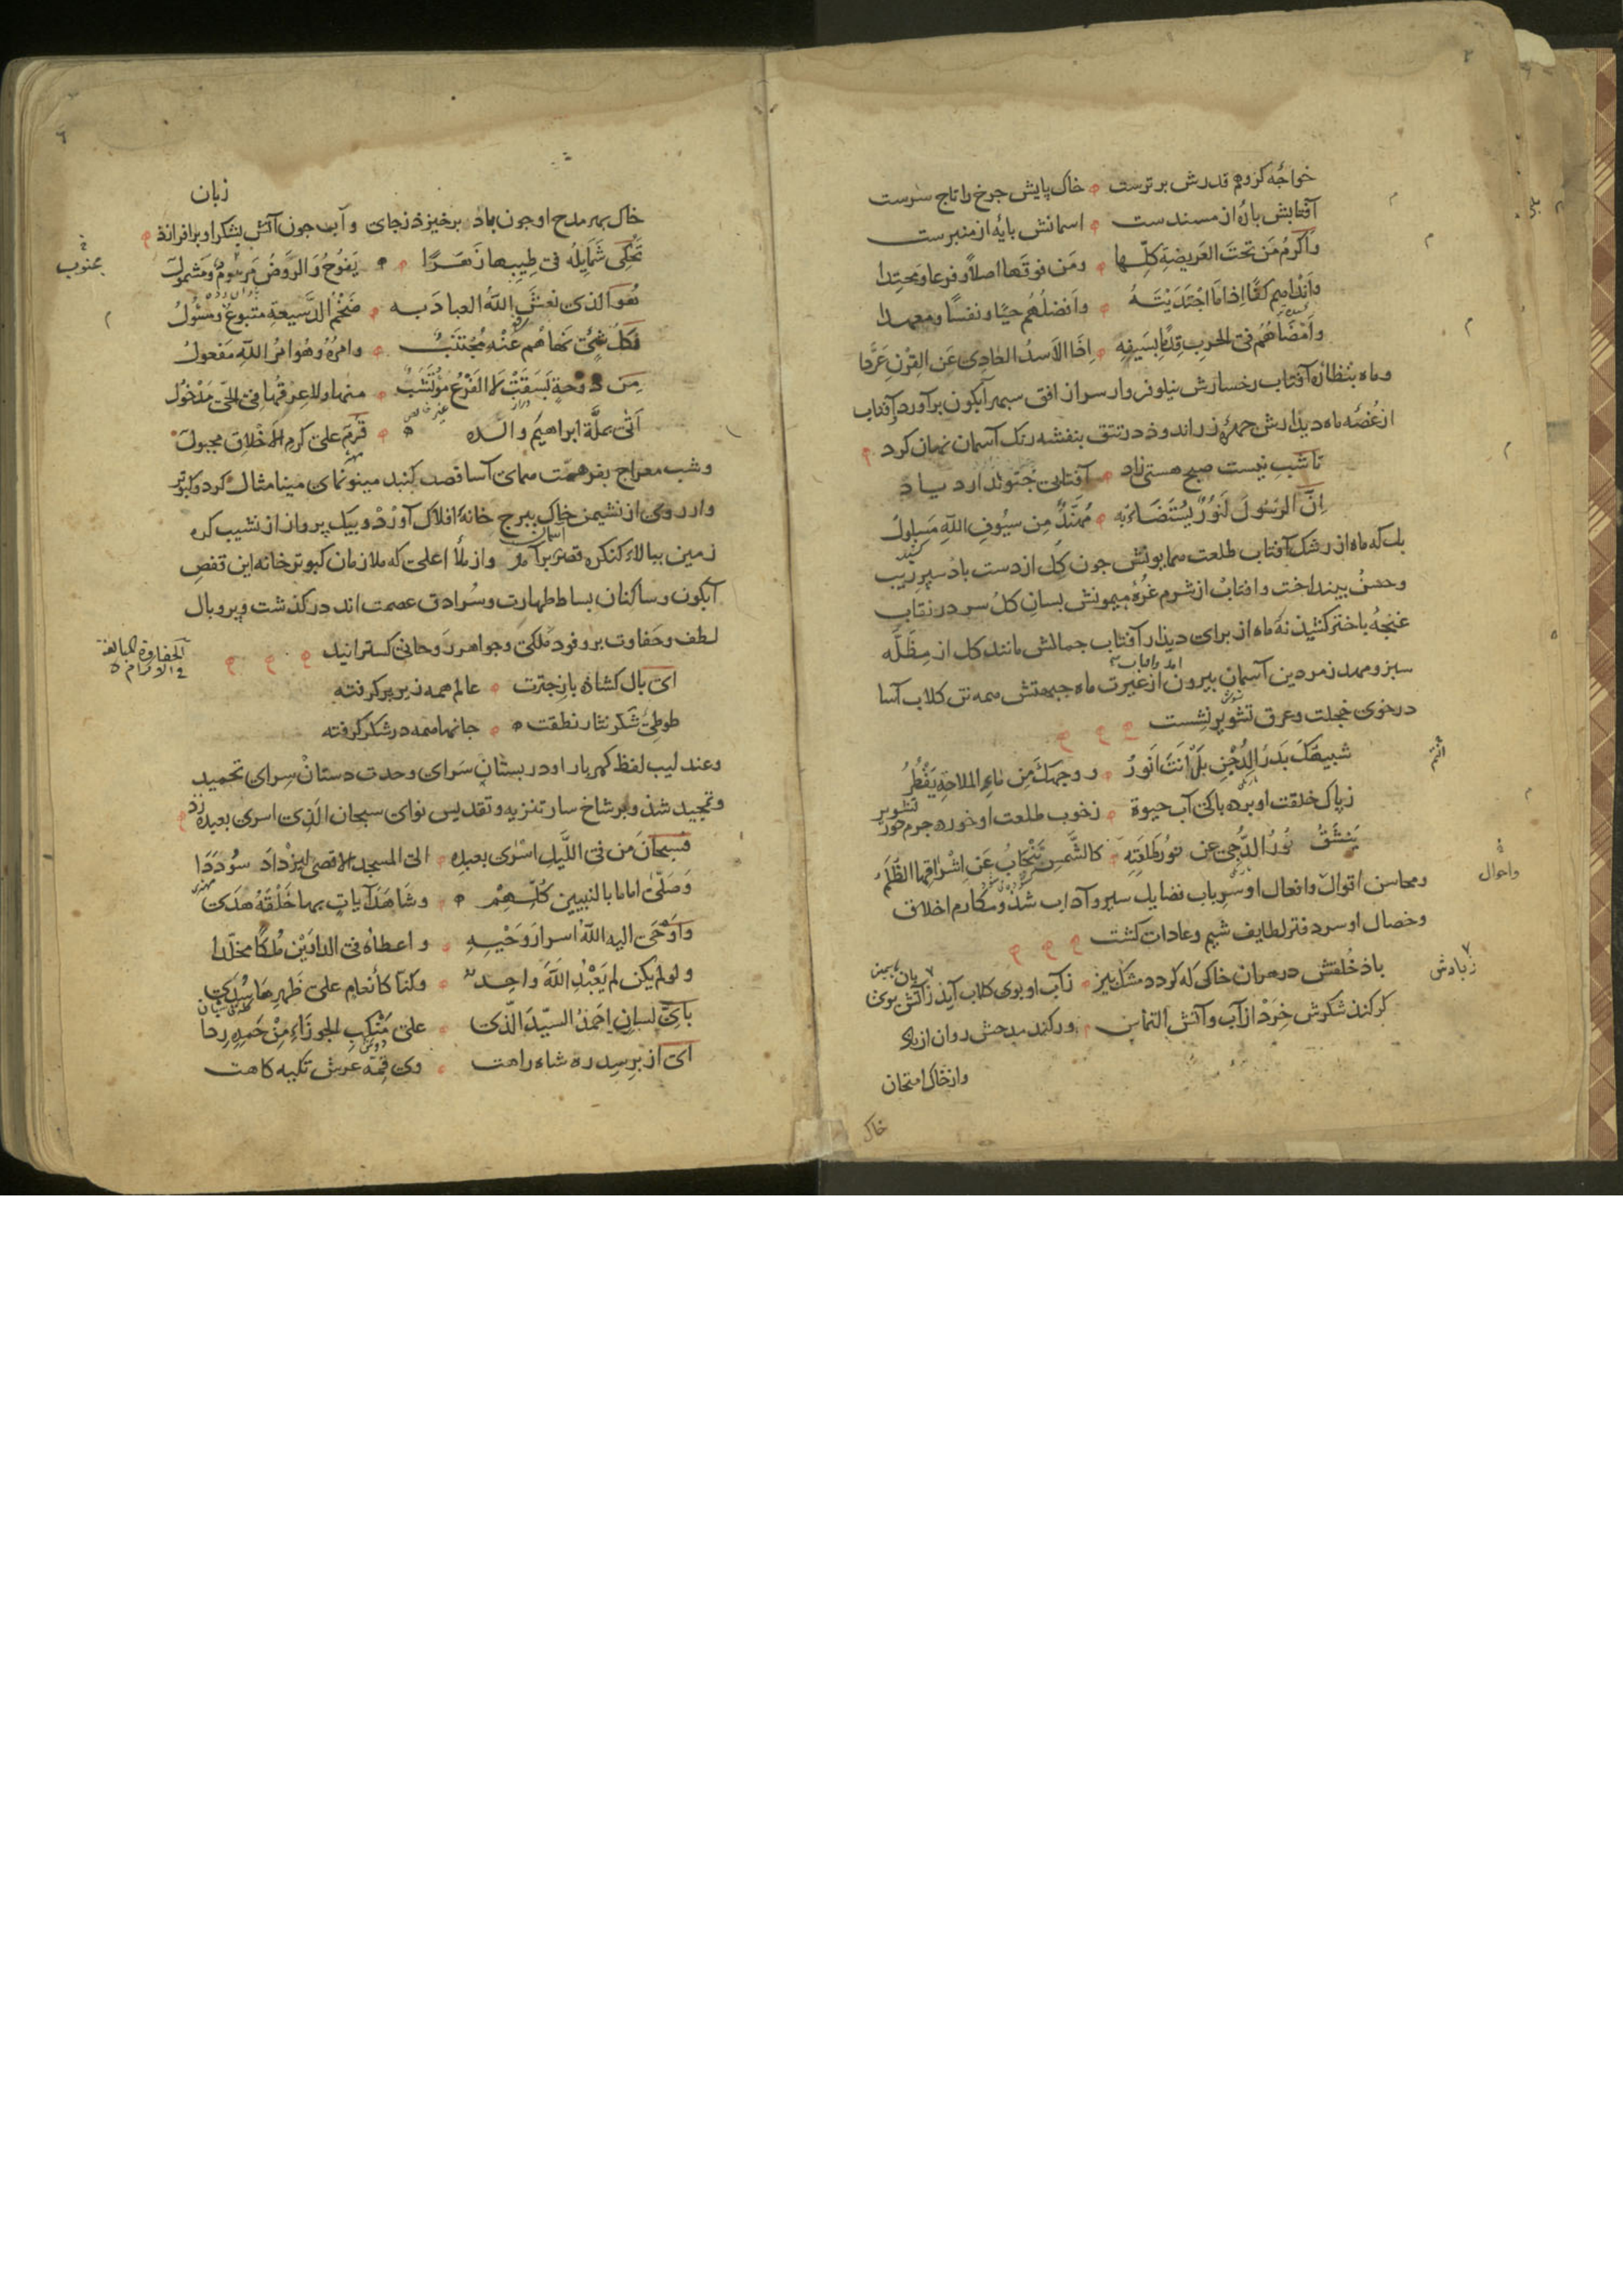 خواجه کزوهم قدرش برترست ه خاک پایش جرخ را تاج سرست
آفتابش بان از مسندست ه اسمانش بایه از منبرست
واکرم من تحت العریضة کلها ه ومن فوقها اصلا وفرعا ومحتدا
واندامم کفا اذا ما اجتدیته ه وافضلهم حیا ونفسا ومعهدا
وامضاهم فی الحرب قدما بسیفه ه اذا الاسد العادی عن القرن عردا
وماه بنظاره آفتاب رخسارش نیلوفروار سر از افق سپهر آبکون برآورد وآفتاب
از غصه ماه دیذارش جهره زراندوذ در تتق بنفشه رنک آسمان نهان کرد
تا شب نیست صبح هستی زاد ه آفتابی جتو ندارد یاد
ان الرسول لنور یستضاء به ه مهند من سیوف الله مسلول
بلک ماه از رشک آفتاب طلعت همایونش جون کل از دست باد سپر
وحسن بینداخت وافتاب از شرم غره میمونش بسان کل سر در نقاب
غنجه باختر کشید نه ماه از برای دیذار آفتاب جمالش مانند کل از مظله
سبز ومهد زمردین آسمان بیرون از غیرت ماه جبهتش همه تن کلاب آسا
در خوی خجلت وعرق تشویر نشست
شبیهک بدر الدجن بل انت انور ه ووجهک من ماء الملاحة یقطر
زپاک خلقت او برده باکی آب حیوة ه زخوب طلعت او خورده جرم خور تشویر
ینشق نور الدجی عن نور طلعته ه کالشمس تنجاب عن اشراقها الظلم
ومحاسن اقوال وافعال او سر باب فضایل سیر وآداب شذ ومکارم اخلاق
واحوال
وخصال او سر دفتر لطایف شیم وعادات کشت
باذ خلقش در هران خاکی که کردد مشک بیز ه زآب او بوی کلاب آیذ زآتش بوی
کر کند شکرش خرد از آب وآتش التماس ه ور کند مدحش روان از باد
واز خاک امتحان
خاک
زبان
خاک بهر مدح او جون باد برخیزد زجای وآب جون آتش بشکر او برافرازد
تحکی شمایله فی طیبها زهرا ه یفوح والروض مرهوم ومشمول
هو الذی نعش الله العباد به ه ضخم الدسیعة متبوع ومسئول
فکل شیء نهاهم عنه مجتنب ه وامره وهو امر الله مفعول
من دوحة بسقت لا الفرع مؤتشب ه منها ولا عرقها فی الحی مدخول
اتی بملة ابراهیم والده ه قرم علی کرم الاخلاق مجبول
وشب معراج بفر همت همای آسا قصد کنبد مینونمای مینا مثال کرد وکبوتر
وار روی از نشیمن خاک ببرج خانه افلاک آورد وبیک پرواز از نشیب کره
زمین ببالاء کنکره قصر برآمد واز ملأ اعلی که ملازمان کبوترخانه این قفص
آبکون وساکنان بساط طهارت وسرادق عصمت اند درکذشت وپر وبال
لطف وحفاوت بر وفود ملکی وجواهر روحانی کسترانید
الحفاوة المبالغة فی الاکرام
ای بال کشاذه باز جترت ه عالم همه زیر پر کرفته
طوطی شکر نثار نطقت ه جانها همه در شکر کرفته
وعندلیب لفظ کهربار او در بستان سرای وحدت دستان سرای تحمید
وتمجید شذ وبر شاخسار تنزیه وتقدیس نوای سبحان الذی اسری بعبده زد
فسبحان من فی اللیل اسری بعبده ه الی المسجد الاقصی لیزداد سؤددا
وصلی اماما بالنبیین کلهم ه وشاهد آیات بها خلقه هدی
واوحی الیه الله اسرار وحیه ه واعطاه فی الدارین ملکا مخلدا
ولو لم یکن لم یعبد الله واحد ه وکنا کأنعام علی ظهرها سدی
بای لسان احمد السید الذی ه علی منکب الجوزاء من حمده ردا
ای از بر سدره شاه راهت ه وی قمه عرش تکیه کاهت